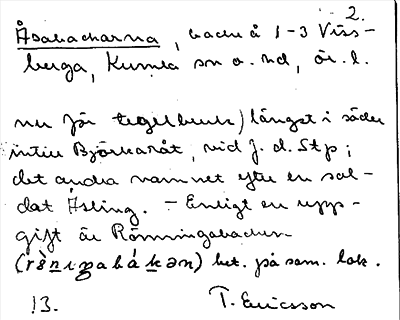 2.
Åsabackarna, backe å 1-3 Viss-
berga, Kumla sn o. hd, ör. l.
nu för tegelbruk) längst i söder
intill Björkaråt, vid f. d. Stp;
det andra namnet efter en sol-
dat Åsling. - Enligt en upp-
gift är Rönningabacken
bet. på sam. lok.
13. T. Ericsson